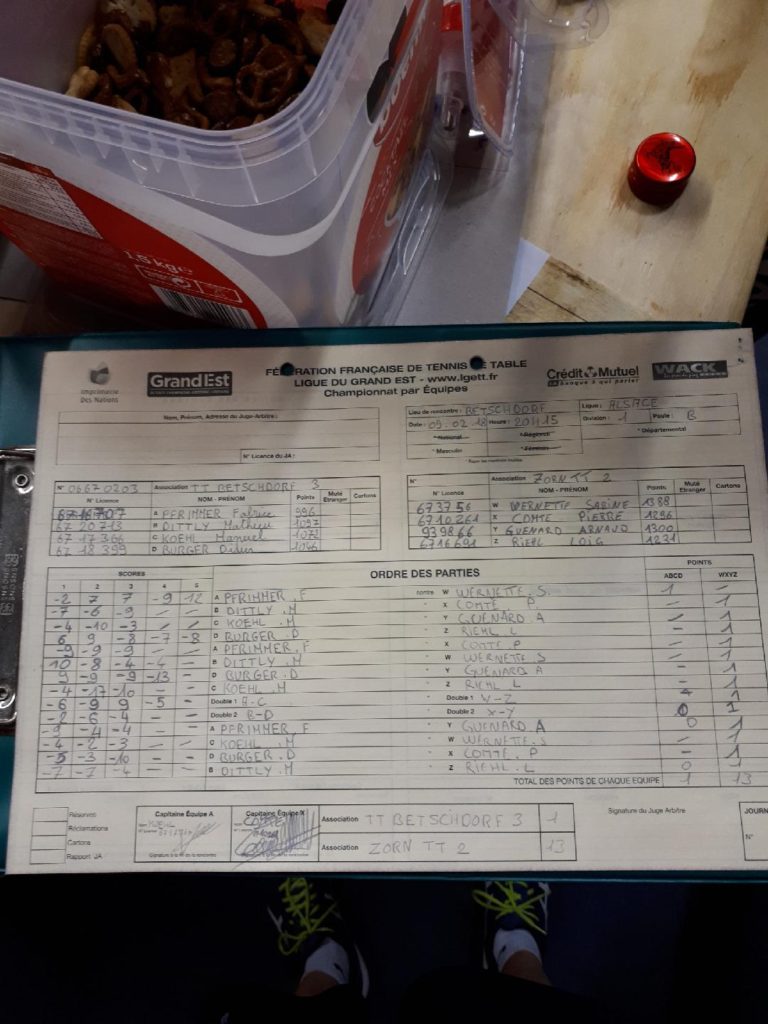 1,5 kg e
Imprimerie
Des Nations
GrandEst
FÉDÉRATION FRANÇAISE DE TENNIS DE TABLE
LIGUE DU GRAND EST - www.lgett.fr
Championnat par Équipes
Crédit Mutuel
La banque à qui parler
WACK
Nom, Prénom, Adresse du Juge-Arbitre :
N° Licence du JA :
Lieu de rencontre : BETSCHDORF Ligue : ALSACE
Date : 09.02.18 Heure : 20H15 Division : 1 Poule : B
*National *Régional *Départemental
*Masculin *Féminin
N° 06670203 Association TT BETSCHDORF 3
N° Licence NOM - PRÉNOM Points Muté Etranger Cartons
6716707 A PFRIMMER Fabrice 996
67 20713 B DITTLY Mathieu 1097
67 17366 C KOEHL Manuel 1072
67 18 399 D BURGER Didier 1046
N° Association ZORN TT 2
N° Licence NOM - PRÉNOM Points Muté Etranger Cartons
673756 W WERNETTE SABINE 1388
6710261 X COMTE PIERRE 1296
939866 Y GUENARD ARNAUD 1300
6716691 Z RIEHL LOIG 1231
SCORES ORDRE DES PARTIES POINTS
1 2 3 4 5 ABCD WXYZ
-2 7 7 -9 12 A PFRIMMER.F contre W WERNETTE.S 1 -
-7 -6 -9 - - B DITTLY.M " X COMTE P. - 1
-4 -10 -3 - - C KOEHL.M " Y GUENARD A - 1
6 9 -8 -7 -8 D BURGER.D " Z RIEHL.L - 1
-9 -9 -9 - - A PFRIMMER.F " X COMTE.P - 1
10 -8 -4 -4 - B DITTLY.M " W WERNETTE.S - 1
9 -9 -9 -13 - D BURGER.D " Y GUENARD.A - 1
-4 -17 -10 - - C KOEHL.M " Z RIEHL.L - 1
-6 -9 9 -5 - Double 1 A-C " Double 1 -Z 1
-2 -6 -4 - - Double 2 B-D " Double 2 X-Y 0 1
-9 -4 -4 A PFRIMMER.F " Y GUENARD.A 0 1
-4 -2 -3 - - C KOEHL.M " W WERNETTE.S - 1
-5 -3 -10 - - D BURGER.D " X COMTE.P - 1
-7 -7 -4 - - B DITTLY.M " Z RIEHL.L 0 1
TOTAL DES POINTS DE CHAQUE EQUIPE 1 13
Réserves
Réclamations
Cartons
Rapport JA :
Capitaine Équipe A
KOEHL
Signature à la fin de la rencontre
Capitaine Équipe X
Association TT BETSCHDORF 3 1
Association ZORN TT 2 13
Signature du Juge Arbitre
JOURN
N°